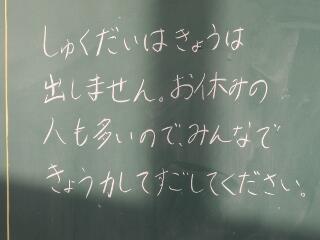 しゅくだいはきょうは
出しません。お休みの
人も多いので、みんなで
きょう力してすごしてください。